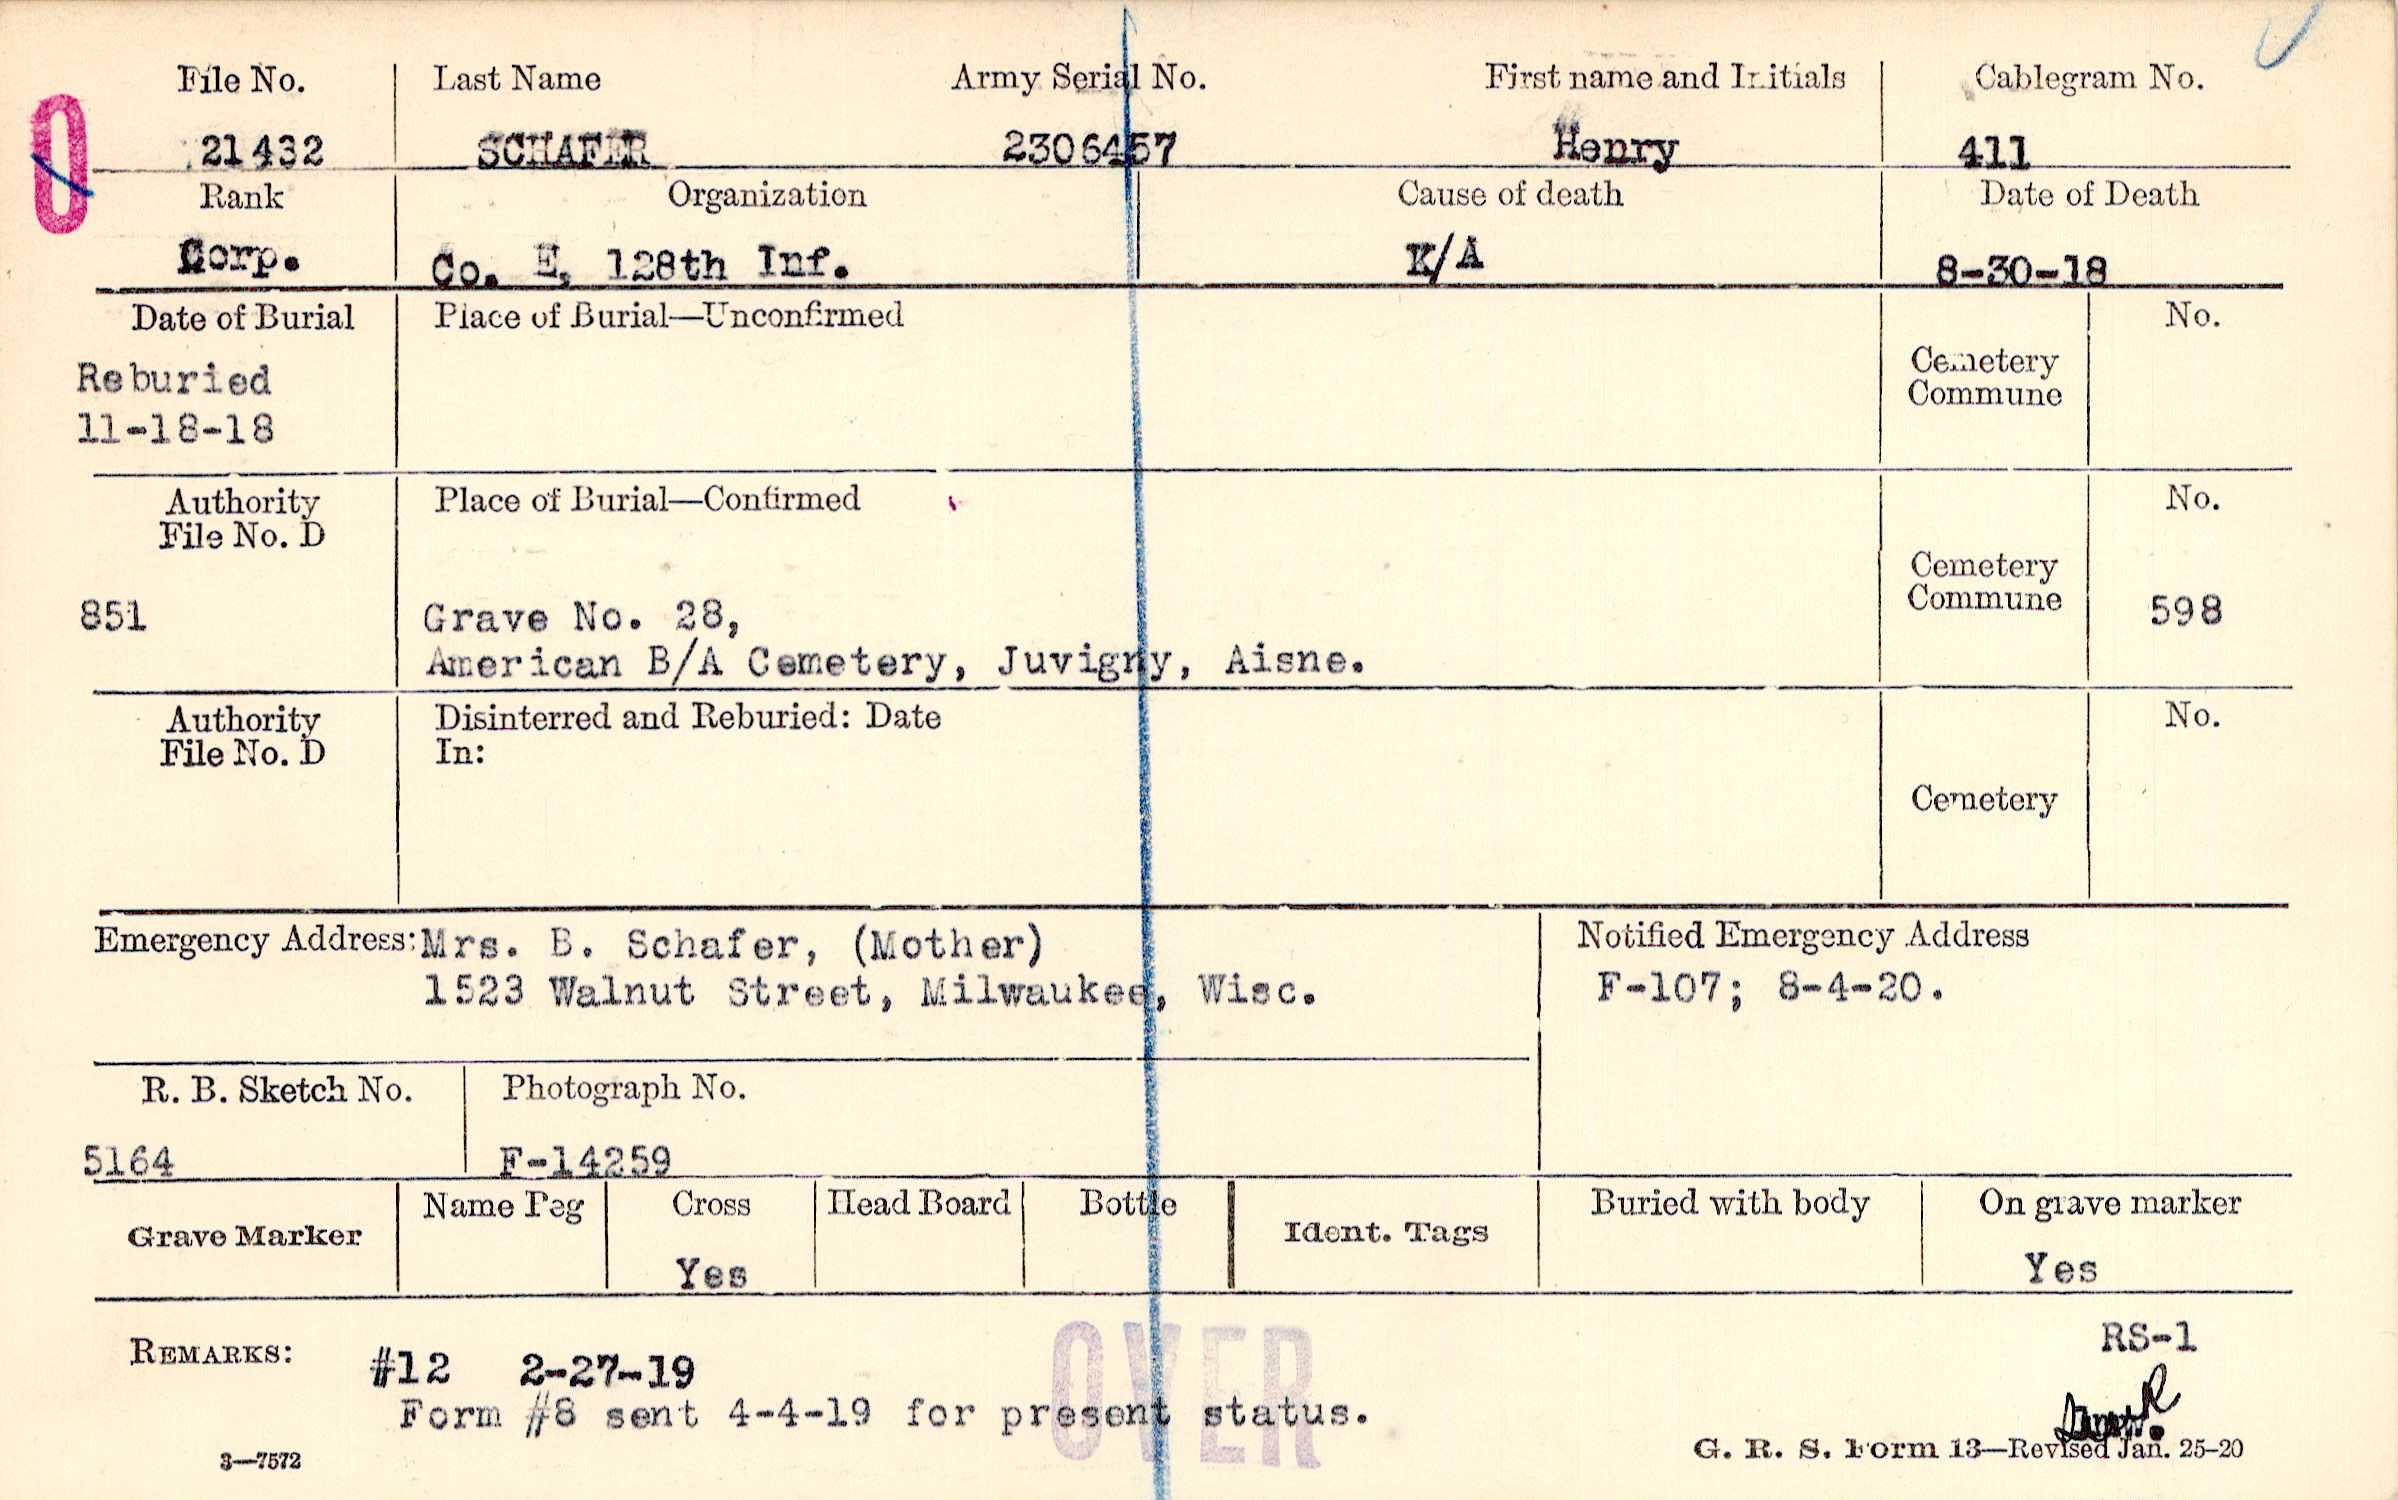 File No.
Last Name
Army Serial No.
First name and Initials
Cablegram No.
0
21432
SCHAFER
2306457
Henry
411
Rank
Organization
Cause of death
Date of Death
Corp.
Co. E, 128th Inf.
K/A
8-30-18
Date of Burial
Place of Burial—Unconfirmed
No.
Cemetery
Commune
Reburied
11-18-18
Authority
File No. D
Place of Burial—Confirmed
No.
Cemetery
Commune
851
Grave No. 28,
American B/A Cemetery, Juvigny, Aisne.
598
Authority
File No. D
Disinterred and Reburied: Date
In:
No.
Cemetery
Emergency Address: Mrs. B. Schafer, (Mother)
1523 Walnut Street, Milwaukee, Wisc.
Notified Emergency Address
F-107; 8-4-20.
R. B. Sketch No.
Photograph No.
5164
F-14259
Grave Marker
Name Peg
Cross
Head Board
Bottle
Ident. Tags
Buried with body
On grave marker
Yes
Yes
REMARKS:
#12 2-27-19
Form #8 sent 4-4-19 for present status.
OVER
RS-1
3—7572
G. R. S. Form 13—Revised Jan. 25-20